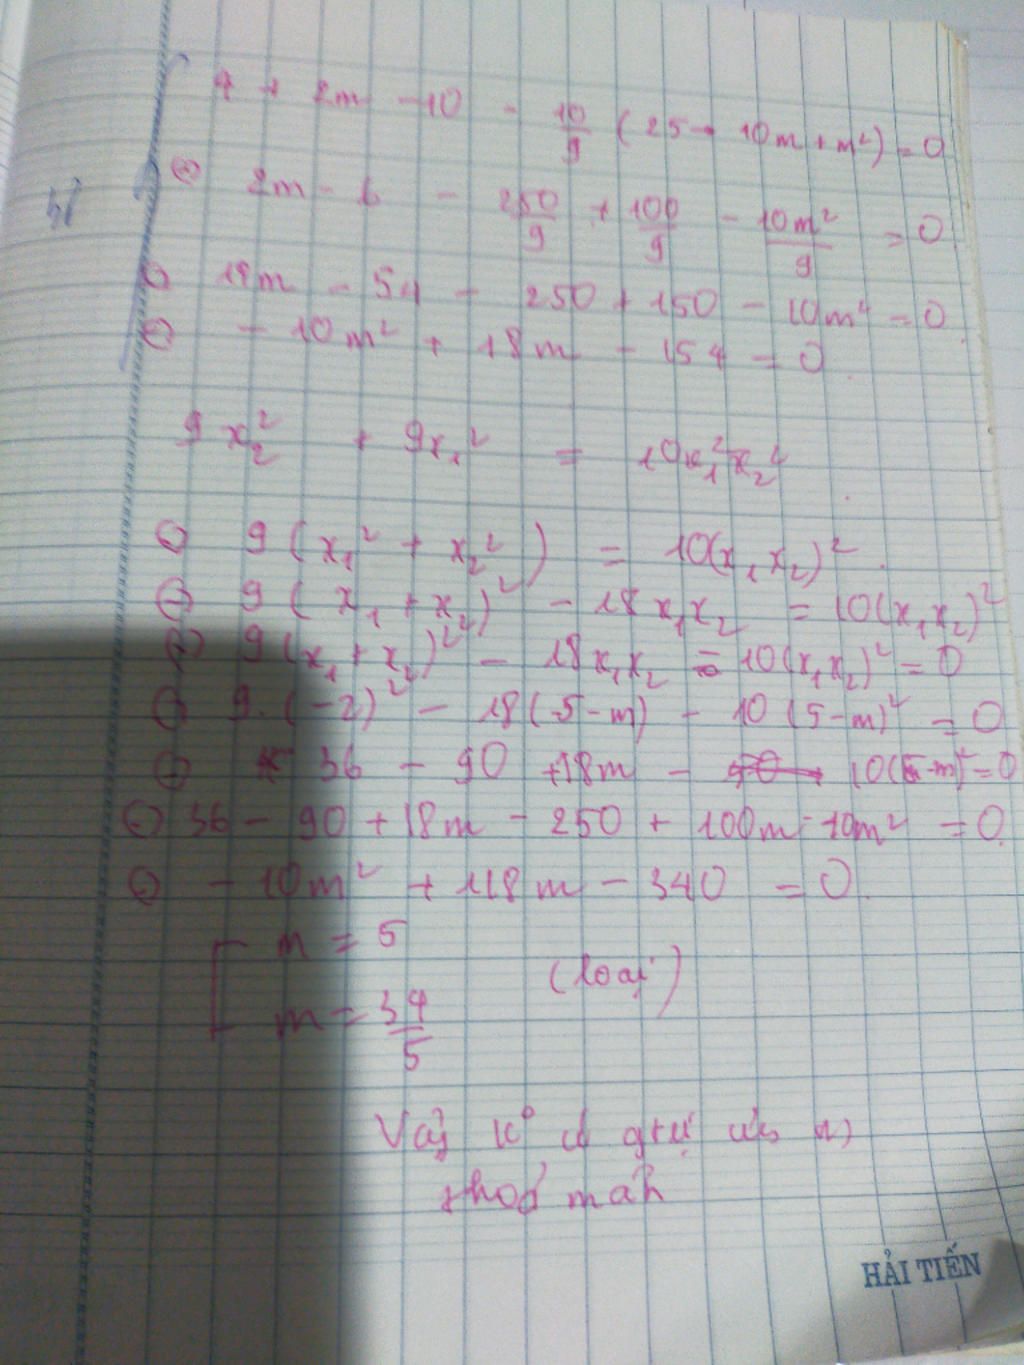 4 + 2m - 10 - 10/9 (25 - 10m + m²) = 0
⇔ 2m - 6 - 250/9 + 100/9 - 10m²/9 = 0
⇔ 18m - 54 - 250 + 150 - 10m² = 0
⇔ - 10m² + 18m - 154 = 0
9x₂² + 9x₁² = 10x₁²x₂²
⇔ 9(x₁² + x₂²) = 10(x₁x₂)²
⇔ 9(x₁ + x₂)² - 18x₁x₂ = 10(x₁x₂)²
⇔ 9(x₁ + x₂)² - 18x₁x₂ - 10(x₁x₂)² = 0
⇔ 9.(-2)² - 18(5-m) - 10(5-m)² = 0
⇔ 36 - 90 + 18m - 10(5-m)² = 0
⇔ 36 - 90 + 18m - 250 + 100m - 10m² = 0
⇔ - 10m² + 118m - 340 = 0
m = 5
(loại)
m = 34/5
Vậy k° có gtrị
thoả mãn
HẢI TIẾN